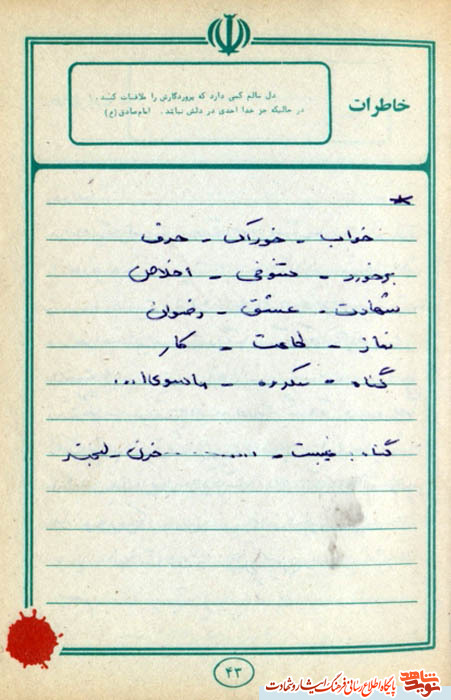 خاطرات
دل سالم کسی دارد که پروردگارش را ملاقات کند.
در حالیکه جز خدا احدی در دلش نباشد. امام صادق (ع)
خواب - خوراک - حرف
برخورد - شوخی - اخلاص
شهادت - عشق - رضوان
نماز - طاعت - کار
گناه - مکروه -
گناه: غیبت - .......... حزن - لبخند
۴۳
نوید شاهد
پایگاه اطلاع رسانی فرهنگ ایثار و شهادت